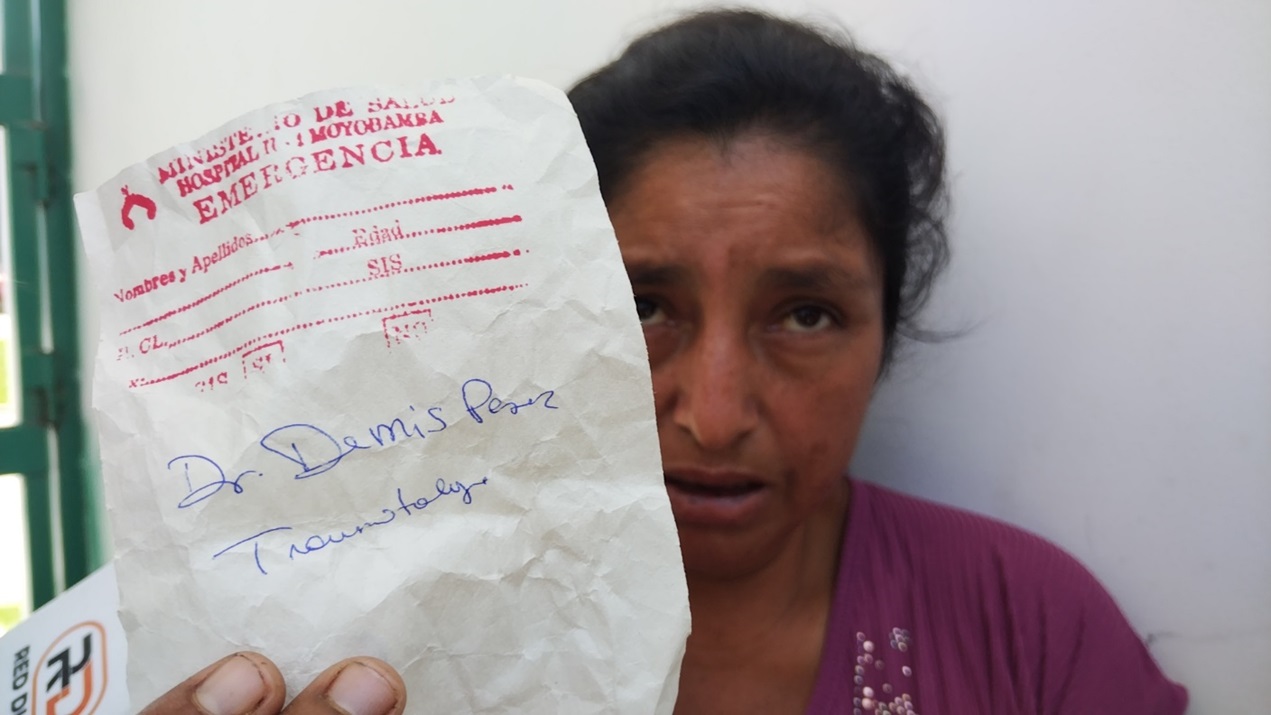 MINISTERIO DE SALUD
HOSPITAL II - 1 MOYOBAMBA
EMERGENCIA
Nombres y Apellidos
Edad
CL. SIS
SIS SI NO
Dr. Demis Perez
Traumatologo
RED